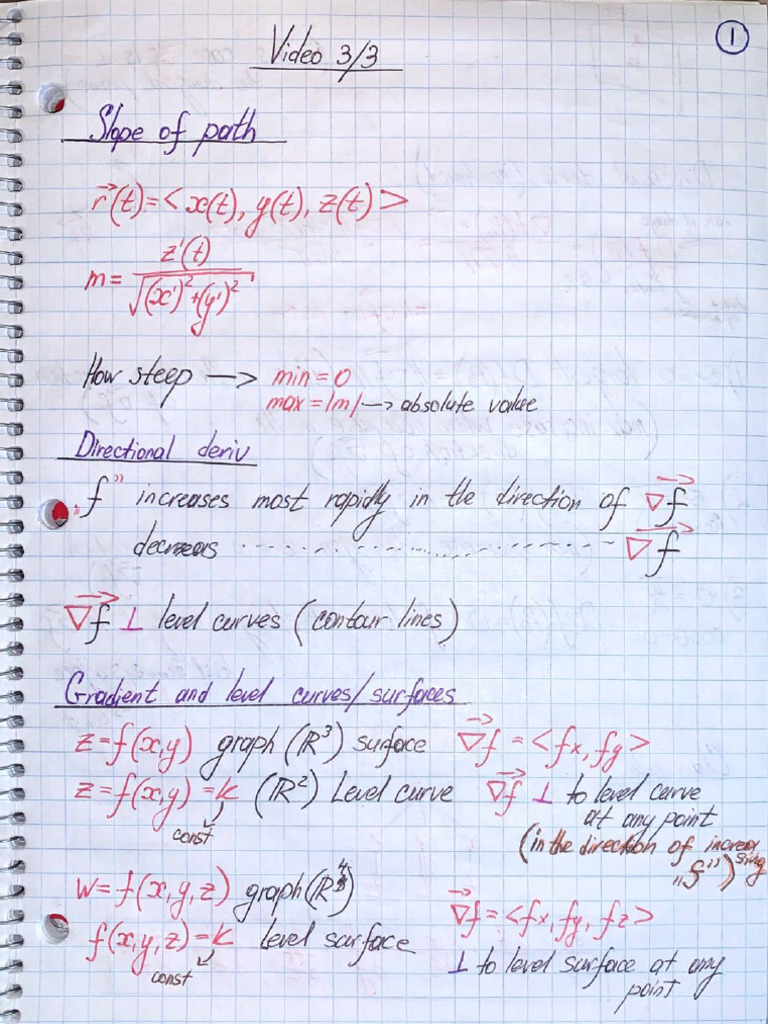 1
Video 3/3
Slope of path
r⃗(t) = < x(t), y(t), z(t) >
m = z'(t) / √((x')² + (y')²)
How steep → min = 0
max = |m| → absolute value
Directional deriv
„f” increases most rapidly in the direction of ∇⃗f
decreases ............ ∇⃗f
∇⃗f ⊥ level curves (contour lines)
Gradient and level curves/surfaces
z = f(x,y) graph (ℝ³) surface ∇⃗f = <fx, fy>
z = f(x,y) = k (ℝ²) Level curve ∇⃗f ⊥ to level curve
const
at any point
(in the direction of increasing
„f”)
w = f(x,y,z) graph (ℝ⁴)
∇⃗f = <fx, fy, fz>
f(x,y,z) = k level surface
const
⊥ to level surface at any
point